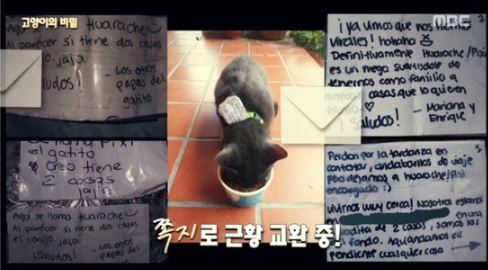 고양이의 비밀
MBC
Aquí se llama Huarache
Al parecer si tiene dos casas
jaja
¡Saludos! - Los otros
papas del
gatito
se llama Pixi
el gatito
creo tiene
2 casas
jajaja
Aquí se llama Huarache
Al parecer si tiene dos casas
el jaja
¡Saludos! - Los otros
papas del
¡ya vimos que nos
virales! hahaha
Definitivamente Huarache/Pixi
es un mega suertudote de
tenernos como familia a
casas que lo quieren
¡Saludos! - Mariana y
Enrique
Perdon por la tardanza en
contestar, andabamos de viaje
dejamos a huarache/Pixi
encargado :)
Vivimos muy cerca! Nosotros estamos
en una
de 2 casas, somos la
del fondo.
pendiente cualquier cosa.
쪽지로 근황 교환 중!